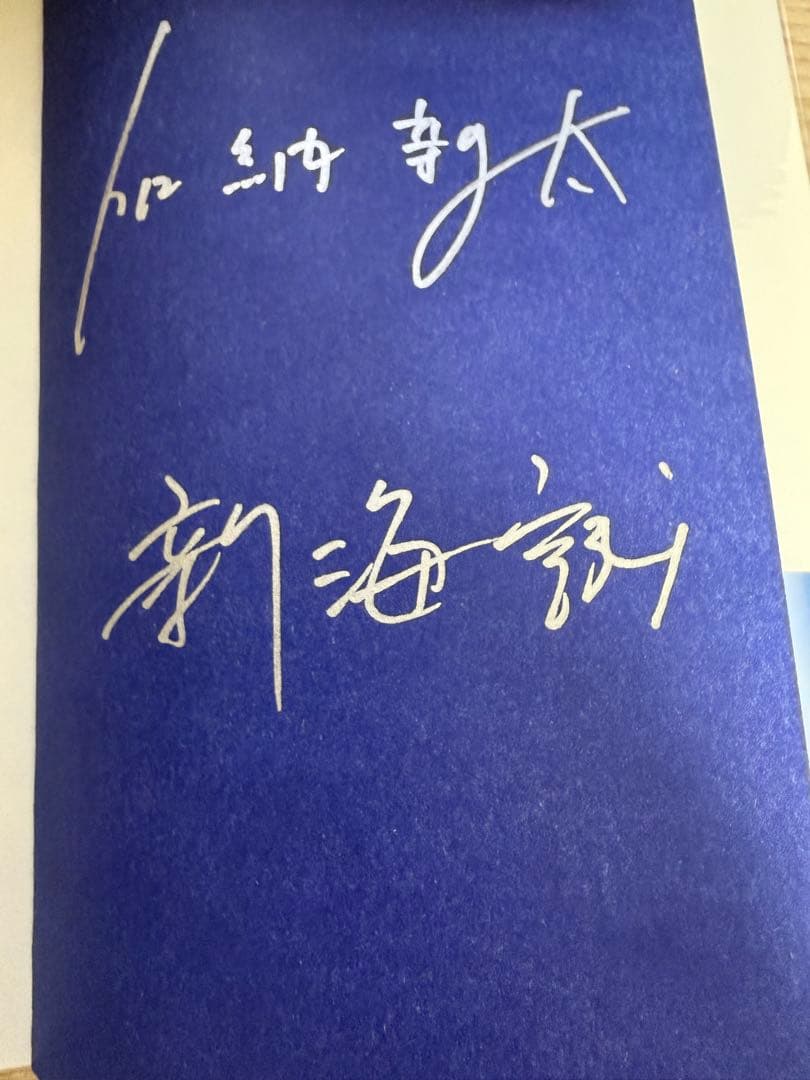 加納新太
新海誠